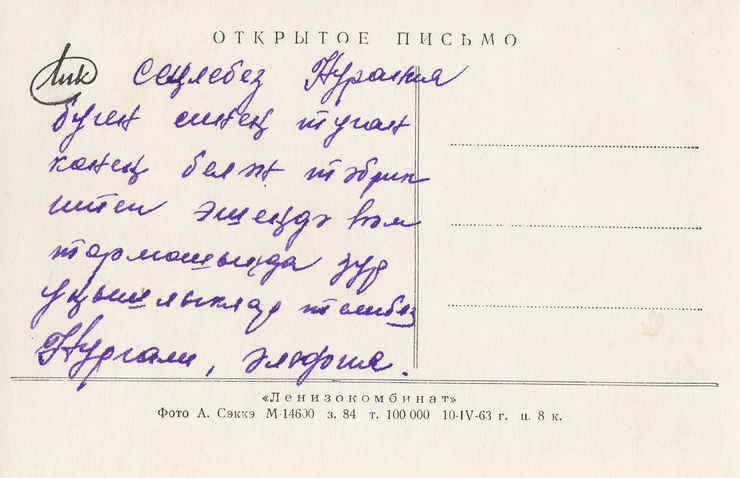 ОТКРЫТОЕ ПИСЬМО
Сеңлебез Нурания
бүген синең туган
көнең белән тәбрик
итеп эшеңдә һәм
тормошыңда зур
уңышлыклар телибез
Нургали, Әлфия.
«Ленизокомбинат»
Фото А. Сэккэ М-14600 з. 84 т. 100 000 10-IV-63 г. ц. 8 к.